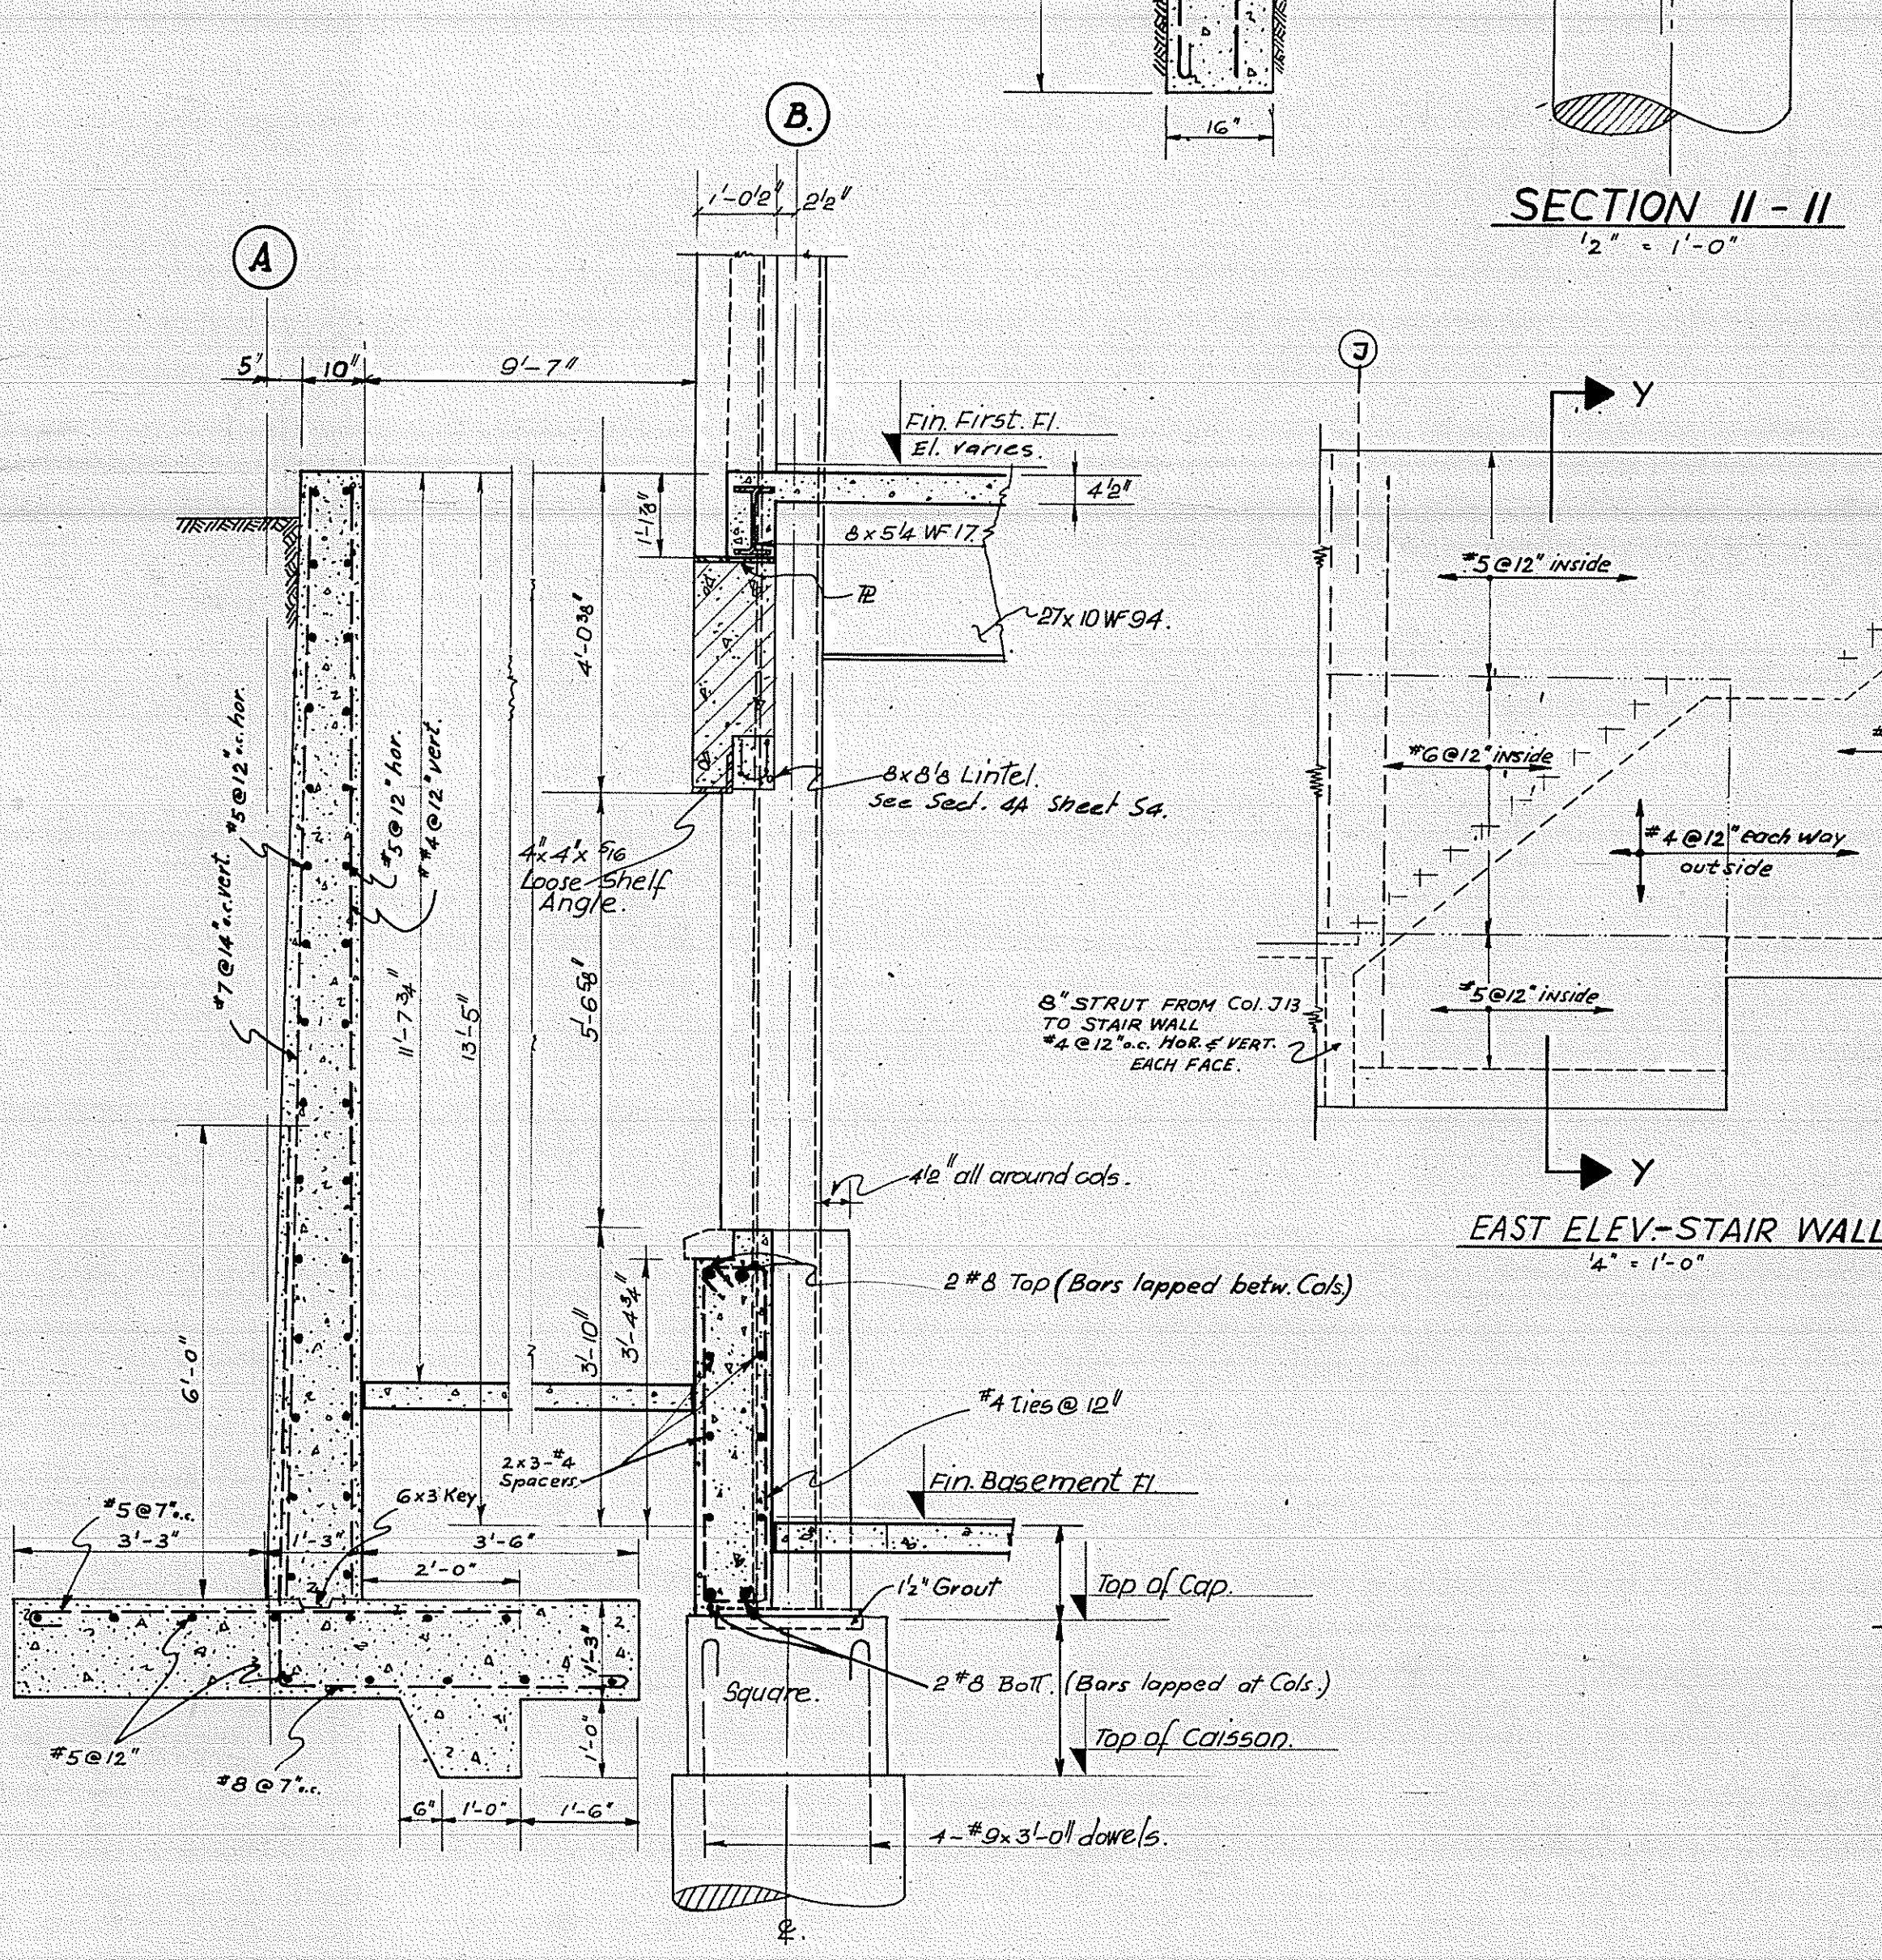 16"
SECTION 11-11
1/2" = 1'-0"
B.
1'-0 1/2"
2 1/2"
A
5"
10"
9'-7"
Fin. First. Fl.
El. varies.
4 1/2"
1'-1 3/8"
8 x 5 1/4 WF 17
PL
27 x 10 WF 94.
4'-0 3/8"
8 x 8 1/8 Lintel.
See Sect. 4A Sheet S4.
4" x 4" x 5/16
Loose Shelf
Angle.
#5 @ 12" o.c. hor.
#7 @ 14" o.c. vert.
#5 @ 12" hor.
#4 @ 12" vert.
11'-7 3/4"
13'-5"
5'-6 5/8"
4 1/2" all around cols.
2 #8 Top (Bars lapped betw. Cols.)
3'-10"
3'-4 3/4"
6'-0"
#4 Ties @ 12"
2x3-#4
Spacers
Fin. Basement Fl.
#5 @ 7" o.c.
6x3 Key
3'-3"
1'-3"
3'-6"
2'-0"
1 1/2" Grout
Top of Cap.
1'-3"
Square.
2 #8 Bott. (Bars lapped at Cols.)
1'-0"
Top of Caisson.
#5 @ 12"
#8 @ 7" o.c.
6"
1'-0"
1'-6"
4-#9 x 3'-0" dowels.
℄.
J
Y
#5 @ 12" inside
#6 @ 12" inside
#
#4 @ 12" each way
outside
#5 @ 12" inside
8" STRUT FROM Col. J13
TO STAIR WALL
#4 @ 12" o.c. HOR. & VERT.
EACH FACE.
Y
EAST ELEV.-STAIR WALL
1/4" = 1'-0"